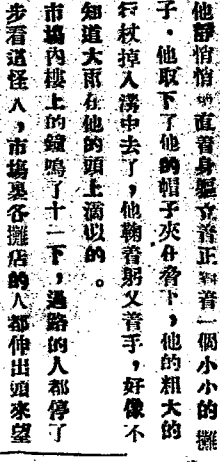 他靜悄悄的直着身軀立着正對着一個小小的攤
子,他取下了他的帽子夾在脅下,他的粗大的
行杖掉入溝中去了,他鞠着躬又着手,好像不
知道大雨在他的頭上滴似的。
市塲內樓上的鐘鳴了十二下,過路的人都停了
步看這怪人,市塲裏各攤店的人都伸出頭來望